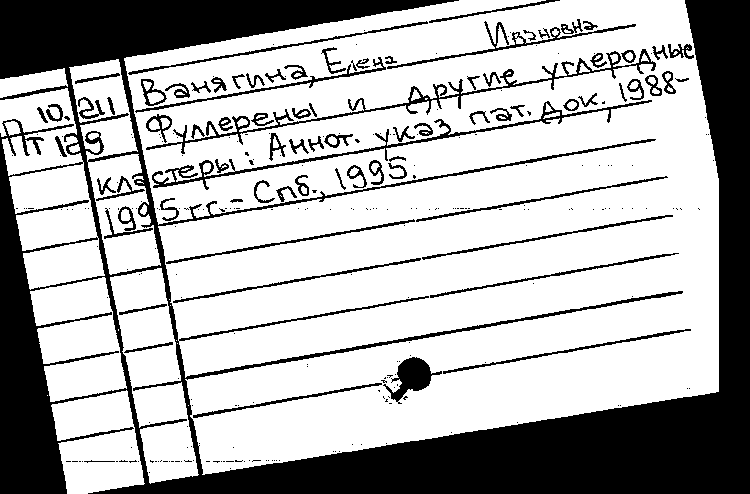 Ванягина, Елена Ивановна
П 10.211
Пт 129
Фуллерены и другие углеродные
кластеры : Аннот. указ пат. док., 1988-
1995 гг. - Спб., 1995.